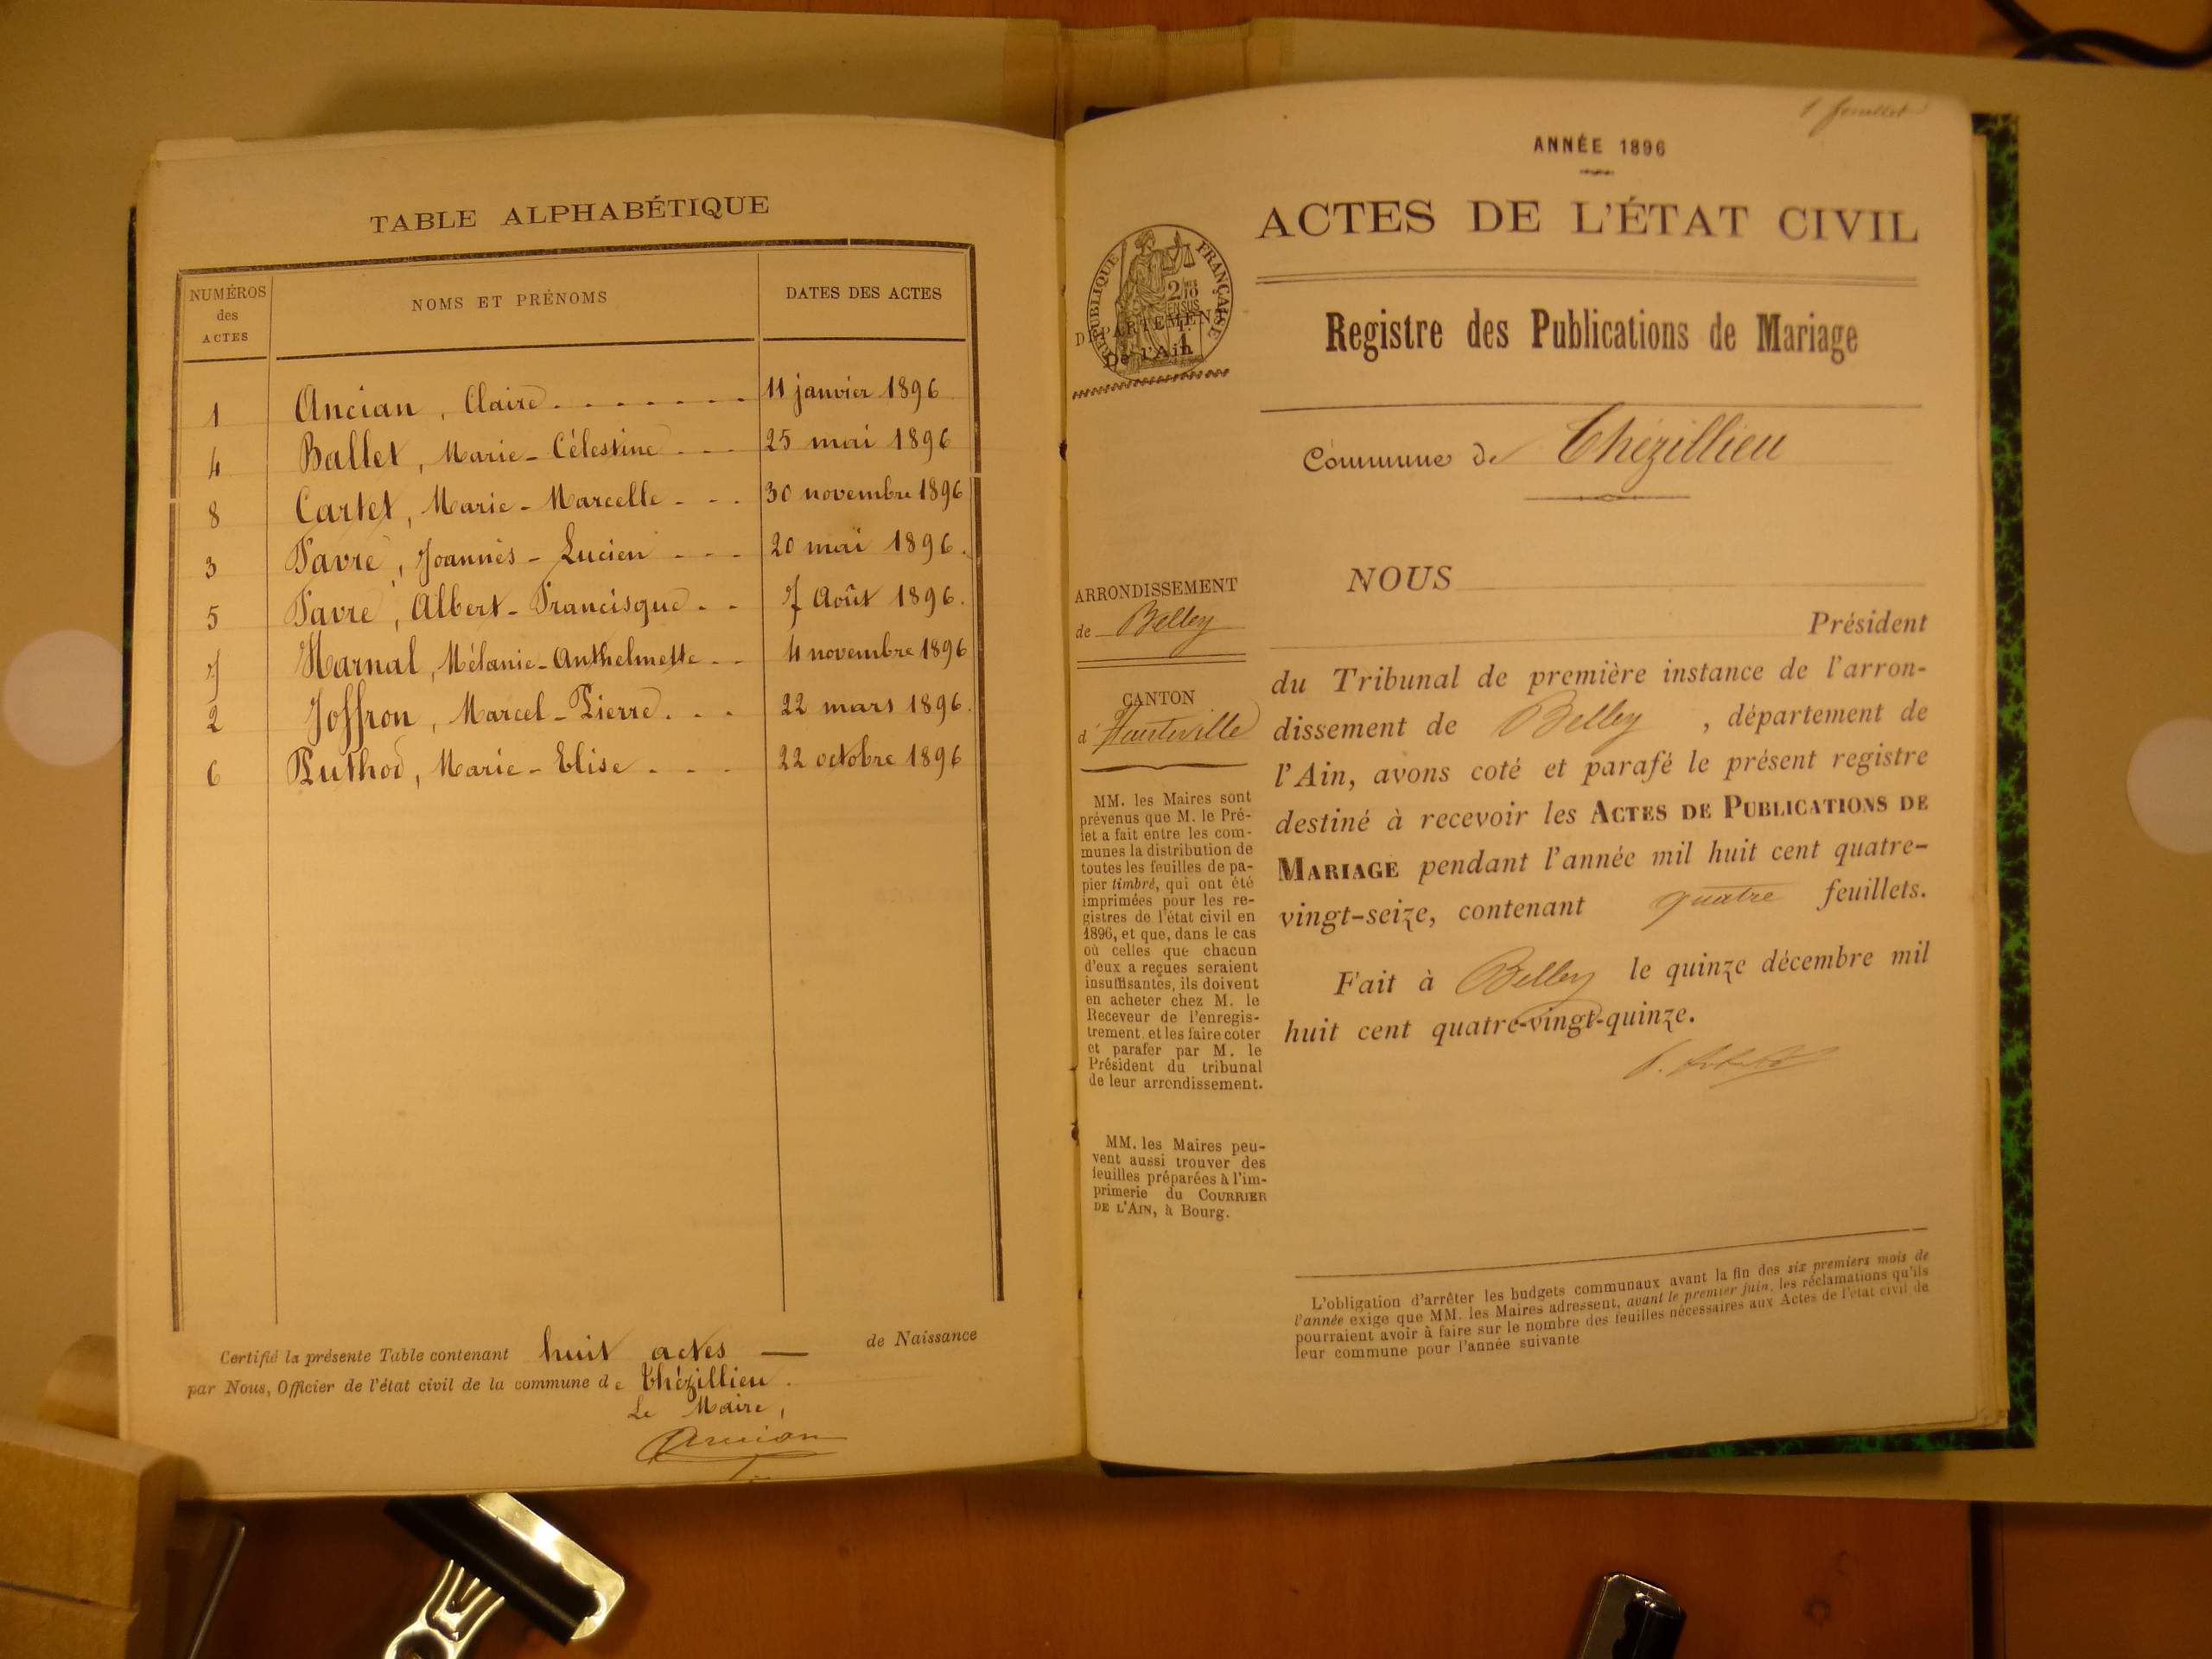 TABLE ALPHABÉTIQUE
NUMÉROS
des
ACTES
NOMS ET PRÉNOMS
DATES DES ACTES
1 Ancian, Claire 11 janvier 1896
4 Ballet, Marie-Célestine 25 mai 1896
8 Cartet, Marie-Marcelle 30 novembre 1896
3 Favre, Joannès-Lucien 20 mai 1896.
5 Favre, Albert-Francisque 7 Août 1896.
7 Harnal, Mélanie-Anthelmette 4 novembre 1896
2 Joffron, Marcel-Pierre 22 mars 1896.
6 Puthod, Marie-Elise 22 octobre 1896
Certifié la présente Table contenant huit actes — de Naissance
par Nous, Officier de l'état civil de la commune de Thézillieu.
Le Maire,
Ancian
1 feuillet
ANNÉE 1896
ACTES DE L'ÉTAT CIVIL
RÉPUBLIQUE FRANÇAISE
DÉPARTEMENT
De l'Ain
Registre des Publications de Mariage
Commune de Thézillieu
ARRONDISSEMENT
de Belley
CANTON
d'Hauteville
MM. les Maires sont
prévenus que M. le Pré-
fet a fait entre les com-
munes la distribution de
toutes les feuilles de pa-
pier timbré, qui ont été
imprimées pour les re-
gistres de l'état civil en
1896, et que, dans le cas
où celles que chacun
d'eux a reçues seraient
insuffisantes, ils doivent
en acheter chez M. le
Receveur de l'enregis-
trement, et les faire coter
et parafer par M. le
Président du tribunal
de leur arrondissement.
MM. les Maires peu-
vent aussi trouver des
feuilles préparées à l'im-
primerie du COURRIER
DE L'AIN, à Bourg.
NOUS
Président
du Tribunal de première instance de l'arron-
dissement de Belley, département de
l'Ain, avons coté et parafé le présent registre
destiné à recevoir les ACTES DE PUBLICATIONS DE
MARIAGE pendant l'année mil huit cent quatre-
vingt-seize, contenant quatre feuillets.
Fait à Belley le quinze décembre mil
huit cent quatre-vingt-quinze.
L'obligation d'arrêter les budgets communaux avant la fin des six premiers mois de
l'année exige que MM. les Maires adressent, avant le premier juin, les réclamations qu'ils
pourraient avoir à faire sur le nombre des feuilles nécessaires aux Actes de l'état civil de
leur commune pour l'année suivante